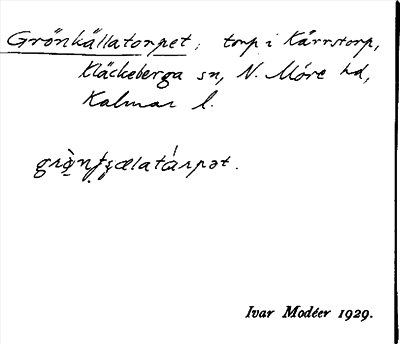 Grönkällatorpet, torp i Kårrstorp,
Kläckeberga sn, N. Möre hd,
Kalmar l.
Ivar Modéer 1929.